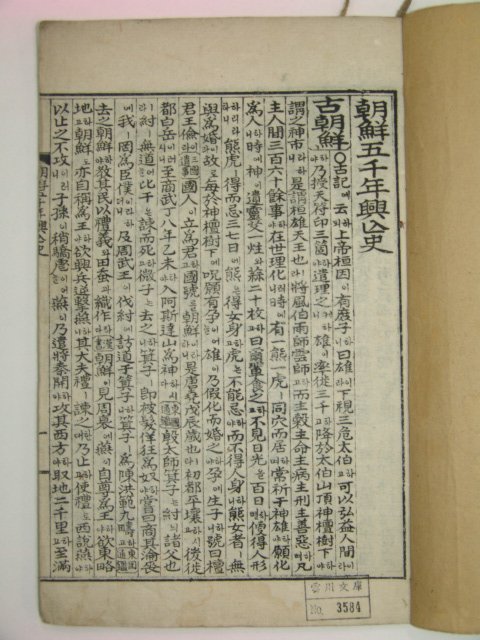 朝鮮五千年興亡史
古朝鮮○古記에云호ᄃᆡ上帝桓因이有庶子하니曰雄이라下視三危太伯하고可以弘益人間이라하야
乃授天符印三箇하야遣理之하니雄이率徒三千하고降於太伯山頂神檀樹下하야
謂之神市라하니是謂桓雄天王也라將風伯雨師雲師하고而主穀主命主病主刑主善惡하며凡
主人間三百六十餘事하야在世理化러니時에有一熊一虎同穴而居하며常祈于神雄하야願化
爲人이어늘時에神이遺靈艾一炷와蒜二十枚하고曰爾輩食之하고不見日光을百日하면便得人形
熊虎ㅣ得而忌三七日에熊은得女身하고虎는不能忌하야而不得人身이라熊女者ㅣ無
與爲婚故로每於神檀樹下에呪願有孕이어늘雄이乃假化而婚之하야孕而生子하니號曰檀
君王儉이라國人이立爲君하니國號를朝鮮이라하니是唐堯戊辰歲也라初都平壤하고後徙
都白岳하야至商武丁八年乙未하야入阿斯達山爲神하시니라殷太師箕子는紂의諸父也라
紂ㅣ無道어늘比干은諫而死하고微子는去之하고箕子는卽被髮佯狂爲奴하야嘗曰商其淪喪
我罔爲臣僕이라하더니及周武王이伐紂에訪道于箕子하니箕子ㅣ爲陳洪範九疇하고
去之朝鮮하야敎其民以禮義와田蠶과織作하니朝鮮이見周衰에燕이自尊爲王하야欲東略
地하고朝鮮도亦自稱爲王하야欲興兵逆擊燕이러니其大夫禮ㅣ諫之한대乃止하고使禮로西說燕
以止之不攻이러니子孫이稍驕虐하니燕이乃遣將秦開하야攻其西方하야取地二千里하고至滿
雲川文庫
No. 3584